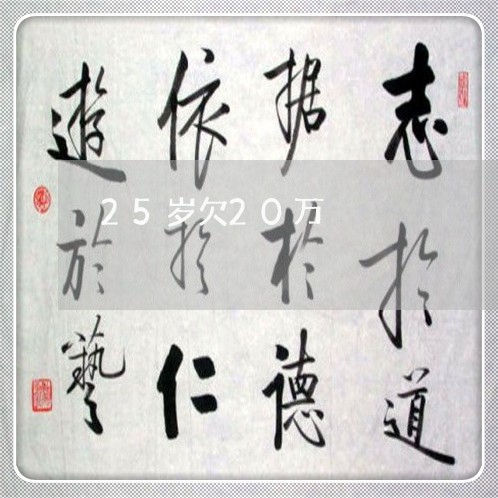 志於道
据於德
依於仁
遊於藝
25岁欠20万